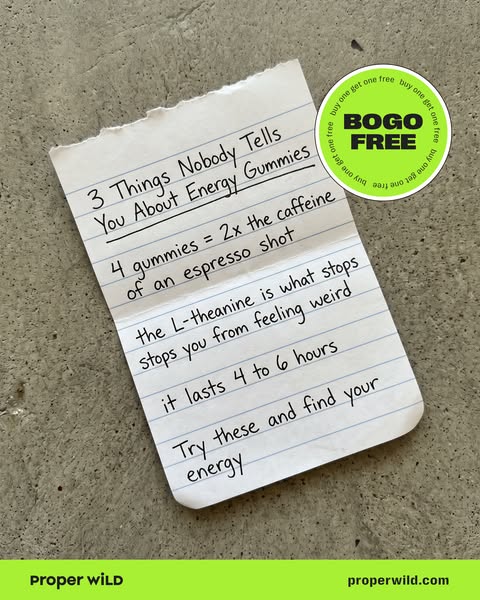 3 Things Nobody Tells
You About Energy Gummies
4 gummies = 2x the caffeine
of an espresso shot
the L-theanine is what stops
stops you from feeling weird
it lasts 4 to 6 hours
Try these and find your
energy
buy one get one free buy one get one free buy one get one free buy one get one free
BOGO
FREE
Proper WiLD
properwild.com